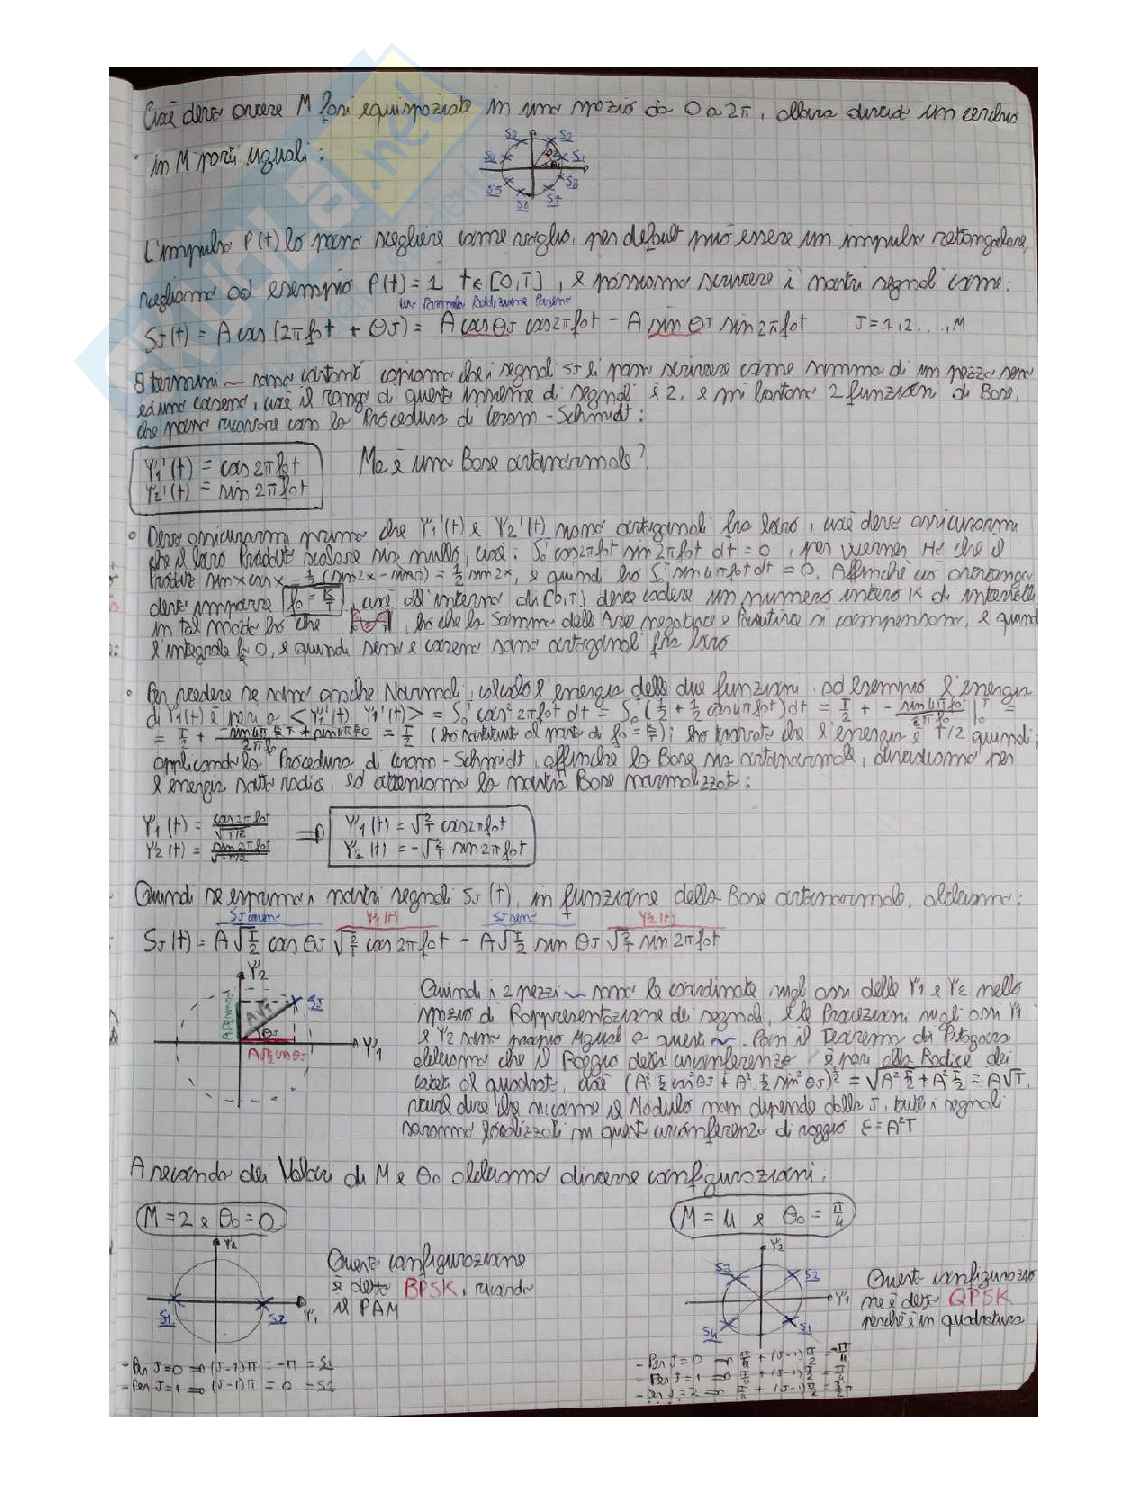 Cioè devo avere M fasi equispaziate in uno spazio da 0 a 2π, allora divido un cerchio
in M parti uguali:
S3 S2 S1 S5 S6 S7 S8
L'impulso P(t) lo posso scegliere come voglio, per default può essere un impulso rettangolare,
scegliamo ad esempio P(t) = 1 t ∈ [0,T], e possiamo scrivere i nostri segnali come:
SJ(t) = A cos (2πf0t + θJ) = A cosθJ cos2πf0t - A sin θJ sin2πf0t J = 1,2...,M
sono costanti capiamo che i segnali SJ si possono scrivere come somma di un pezzo seno
ed uno coseno, cioè il rango di questo insieme di segnali è 2, e mi bastano 2 funzioni di Base,
che posso ricavare con la Procedura di Gram-Schmidt:
Ψ1'(t) = cos 2πf0t
Ψ2'(t) = sin 2πf0t
Ma è una Base ortonormale?
• Devo assicurarmi prima che Ψ1'(t) e Ψ2'(t) siano ortogonali fra loro, cioè devo assicurarmi
che il loro Prodotto scalare sia nullo, cioè: cos2πf0t sin2πf0t dt = 0, per Werner Ho che il
= 1/2 sin2x, e quindi ho sin4πf0t dt = 0. Affinché ciò avvenga
devo imporre f0 = K/T, cioè all'interno di [0,T] deve cadere un numero intero K di intervalli
in tal modo ho che , ho che la Somma delle Aree negative e Positive si compensano, e quindi
l'integrale fa 0, e quindi seno e coseno sono ortogonali fra loro
• Per vedere se sono anche Normali, calcolo l'energia delle due funzioni, ad esempio l'energia
di Ψ1(t) è pari a <Ψ1'(t) Ψ1'(t)> = cos² 2πf0t dt = (1/2 + 1/2 cos4πf0t)dt = T/2 +
= T/2 (ho sostituito al posto di f0 = K/T); ho trovato che l'energia è T/2 quindi,
applicando la Procedura di Gram-Schmidt, affinché la Base sia ortonormale, dividiamo per
l'energia sotto radice, ed otteniamo la nostra Base normalizzata:
Ψ1(t) = cos2πf0t/√T/2
Ψ2(t) = sin2πf0t/√T/2
Ψ1(t) = √2/T cos2πf0t
Ψ2(t) = -√2/T sin2πf0t
Quindi se esprimo i nostri segnali SJ(t), in funzione della Base ortonormale, abbiamo:
SJ coseno Ψ1(t) SJ seno Ψ2(t)
SJ(t) = A√T/2 cos θJ √2/T cos2πf0t - A√T/2 sin θJ √2/T sin2πf0t
Ψ2
SJ
θJ
Ψ1
Quindi i 2 pezzi sono le coordinate sugli assi delle Ψ1 e Ψ2 nello
spazio di Rappresentazione dei segnali, e le Proiezioni sugli assi Ψ1
e Ψ2 sono proprio uguali a questi. Per il Teorema di Pitagora
abbiamo che il Raggio della circonferenza è pari alla Radice dei
cateti al quadrato, cioè (A² T/2 cos²θJ + A² T/2 sin²θJ)^1/2 = √A² T/2 + A² T/2 = A√T,
vuol dire che siccome il Modulo non dipende dalla J, tutti i segnali
saranno localizzati in questa circonferenza di raggio E = A²T
A seconda dei Valori di M e θ0 abbiamo diverse configurazioni:
M = 2 e θ0 = 0
Ψ2
S1 S2 Ψ1
Questa configurazione
è detta BPSK, ricorda
il PAM
- Per J=0 ⇒ (J-1)π = -π = S1
- Per J=1 ⇒ (J-1)π = 0 = S2
M = 4 e θ0 = π/4
Ψ2
S3 S2
Ψ1
S4 S1
Questa configurazio
ne è detta QPSK
perché è in quadratura
- Per J=0 ⇒ π/4 + (J-1)π/2 = -π/4
- Per J=1 ⇒ π/4 + (J-1)π/2 = π/4
- Per J=2 ⇒ π/4 + (J-1)π/2